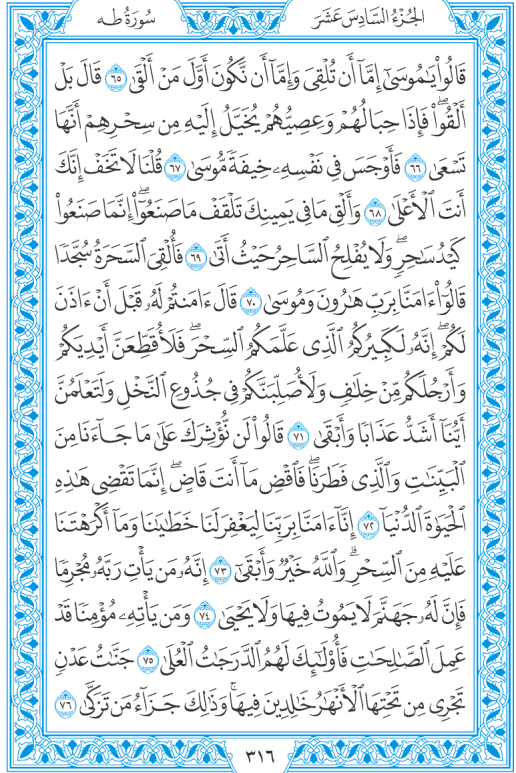 الجُزْءُ السَّادِسَ عَشَرَ
سُورَةُ طه
قَالُوا۟ يَـٰمُوسَىٰٓ إِمَّآ أَن تُلْقِىَ وَإِمَّآ أَن نَّكُونَ أَوَّلَ مَنْ أَلْقَىٰ ٦٥ قَالَ بَلْ
أَلْقُوا۟ ۖ فَإِذَا حِبَالُهُمْ وَعِصِيُّهُمْ يُخَيَّلُ إِلَيْهِ مِن سِحْرِهِمْ أَنَّهَا
تَسْعَىٰ ٦٦ فَأَوْجَسَ فِى نَفْسِهِۦ خِيفَةً مُّوسَىٰ ٦٧ قُلْنَا لَا تَخَفْ إِنَّكَ
أَنتَ ٱلْأَعْلَىٰ ٦٨ وَأَلْقِ مَا فِى يَمِينِكَ تَلْقَفْ مَا صَنَعُوٓا۟ ۖ إِنَّمَا صَنَعُوا۟
كَيْدُ سَـٰحِرٍ ۖ وَلَا يُفْلِحُ ٱلسَّاحِرُ حَيْثُ أَتَىٰ ٦٩ فَأُلْقِىَ ٱلسَّحَرَةُ سُجَّدًا
قَالُوٓا۟ ءَامَنَّا بِرَبِّ هَـٰرُونَ وَمُوسَىٰ ٧٠ قَالَ ءَامَنتُمْ لَهُۥ قَبْلَ أَنْ ءَاذَنَ
لَكُمْ ۖ إِنَّهُۥ لَكَبِيرُكُمُ ٱلَّذِى عَلَّمَكُمُ ٱلسِّحْرَ ۖ فَلَأُقَطِّعَنَّ أَيْدِيَكُمْ
وَأَرْجُلَكُم مِّنْ خِلَـٰفٍ وَلَأُصَلِّبَنَّكُمْ فِى جُذُوعِ ٱلنَّخْلِ وَلَتَعْلَمُنَّ
أَيُّنَآ أَشَدُّ عَذَابًا وَأَبْقَىٰ ٧١ قَالُوا۟ لَن نُّؤْثِرَكَ عَلَىٰ مَا جَآءَنَا مِنَ
ٱلْبَيِّنَـٰتِ وَٱلَّذِى فَطَرَنَا ۖ فَٱقْضِ مَآ أَنتَ قَاضٍ ۖ إِنَّمَا تَقْضِى هَـٰذِهِ
ٱلْحَيَوٰةَ ٱلدُّنْيَآ ٧٢ إِنَّآ ءَامَنَّا بِرَبِّنَا لِيَغْفِرَ لَنَا خَطَـٰيَـٰنَا وَمَآ أَكْرَهْتَنَا
عَلَيْهِ مِنَ ٱلسِّحْرِ ۗ وَٱللَّهُ خَيْرٌ وَأَبْقَىٰٓ ٧٣ إِنَّهُۥ مَن يَأْتِ رَبَّهُۥ مُجْرِمًا
فَإِنَّ لَهُۥ جَهَنَّمَ لَا يَمُوتُ فِيهَا وَلَا يَحْيَىٰ ٧٤ وَمَن يَأْتِهِۦ مُؤْمِنًا قَدْ
عَمِلَ ٱلصَّـٰلِحَـٰتِ فَأُو۟لَـٰٓئِكَ لَهُمُ ٱلدَّرَجَـٰتُ ٱلْعُلَىٰ ٧٥ جَنَّـٰتُ عَدْنٍ
تَجْرِى مِن تَحْتِهَا ٱلْأَنْهَـٰرُ خَـٰلِدِينَ فِيهَا ۚ وَذَٰلِكَ جَزَآءُ مَن تَزَكَّىٰ ٧٦
٣١٦